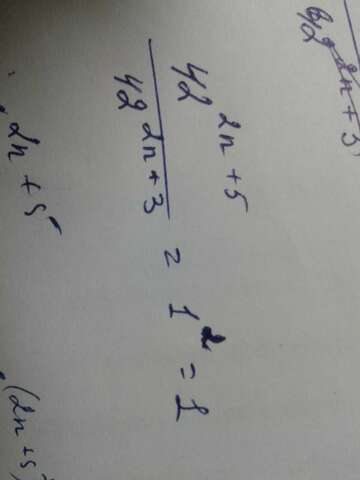 42^{2n+3}
\frac{42^{2n+5}}{42^{2n+3}} = 1^2 = 1
2n+5
(2n+5